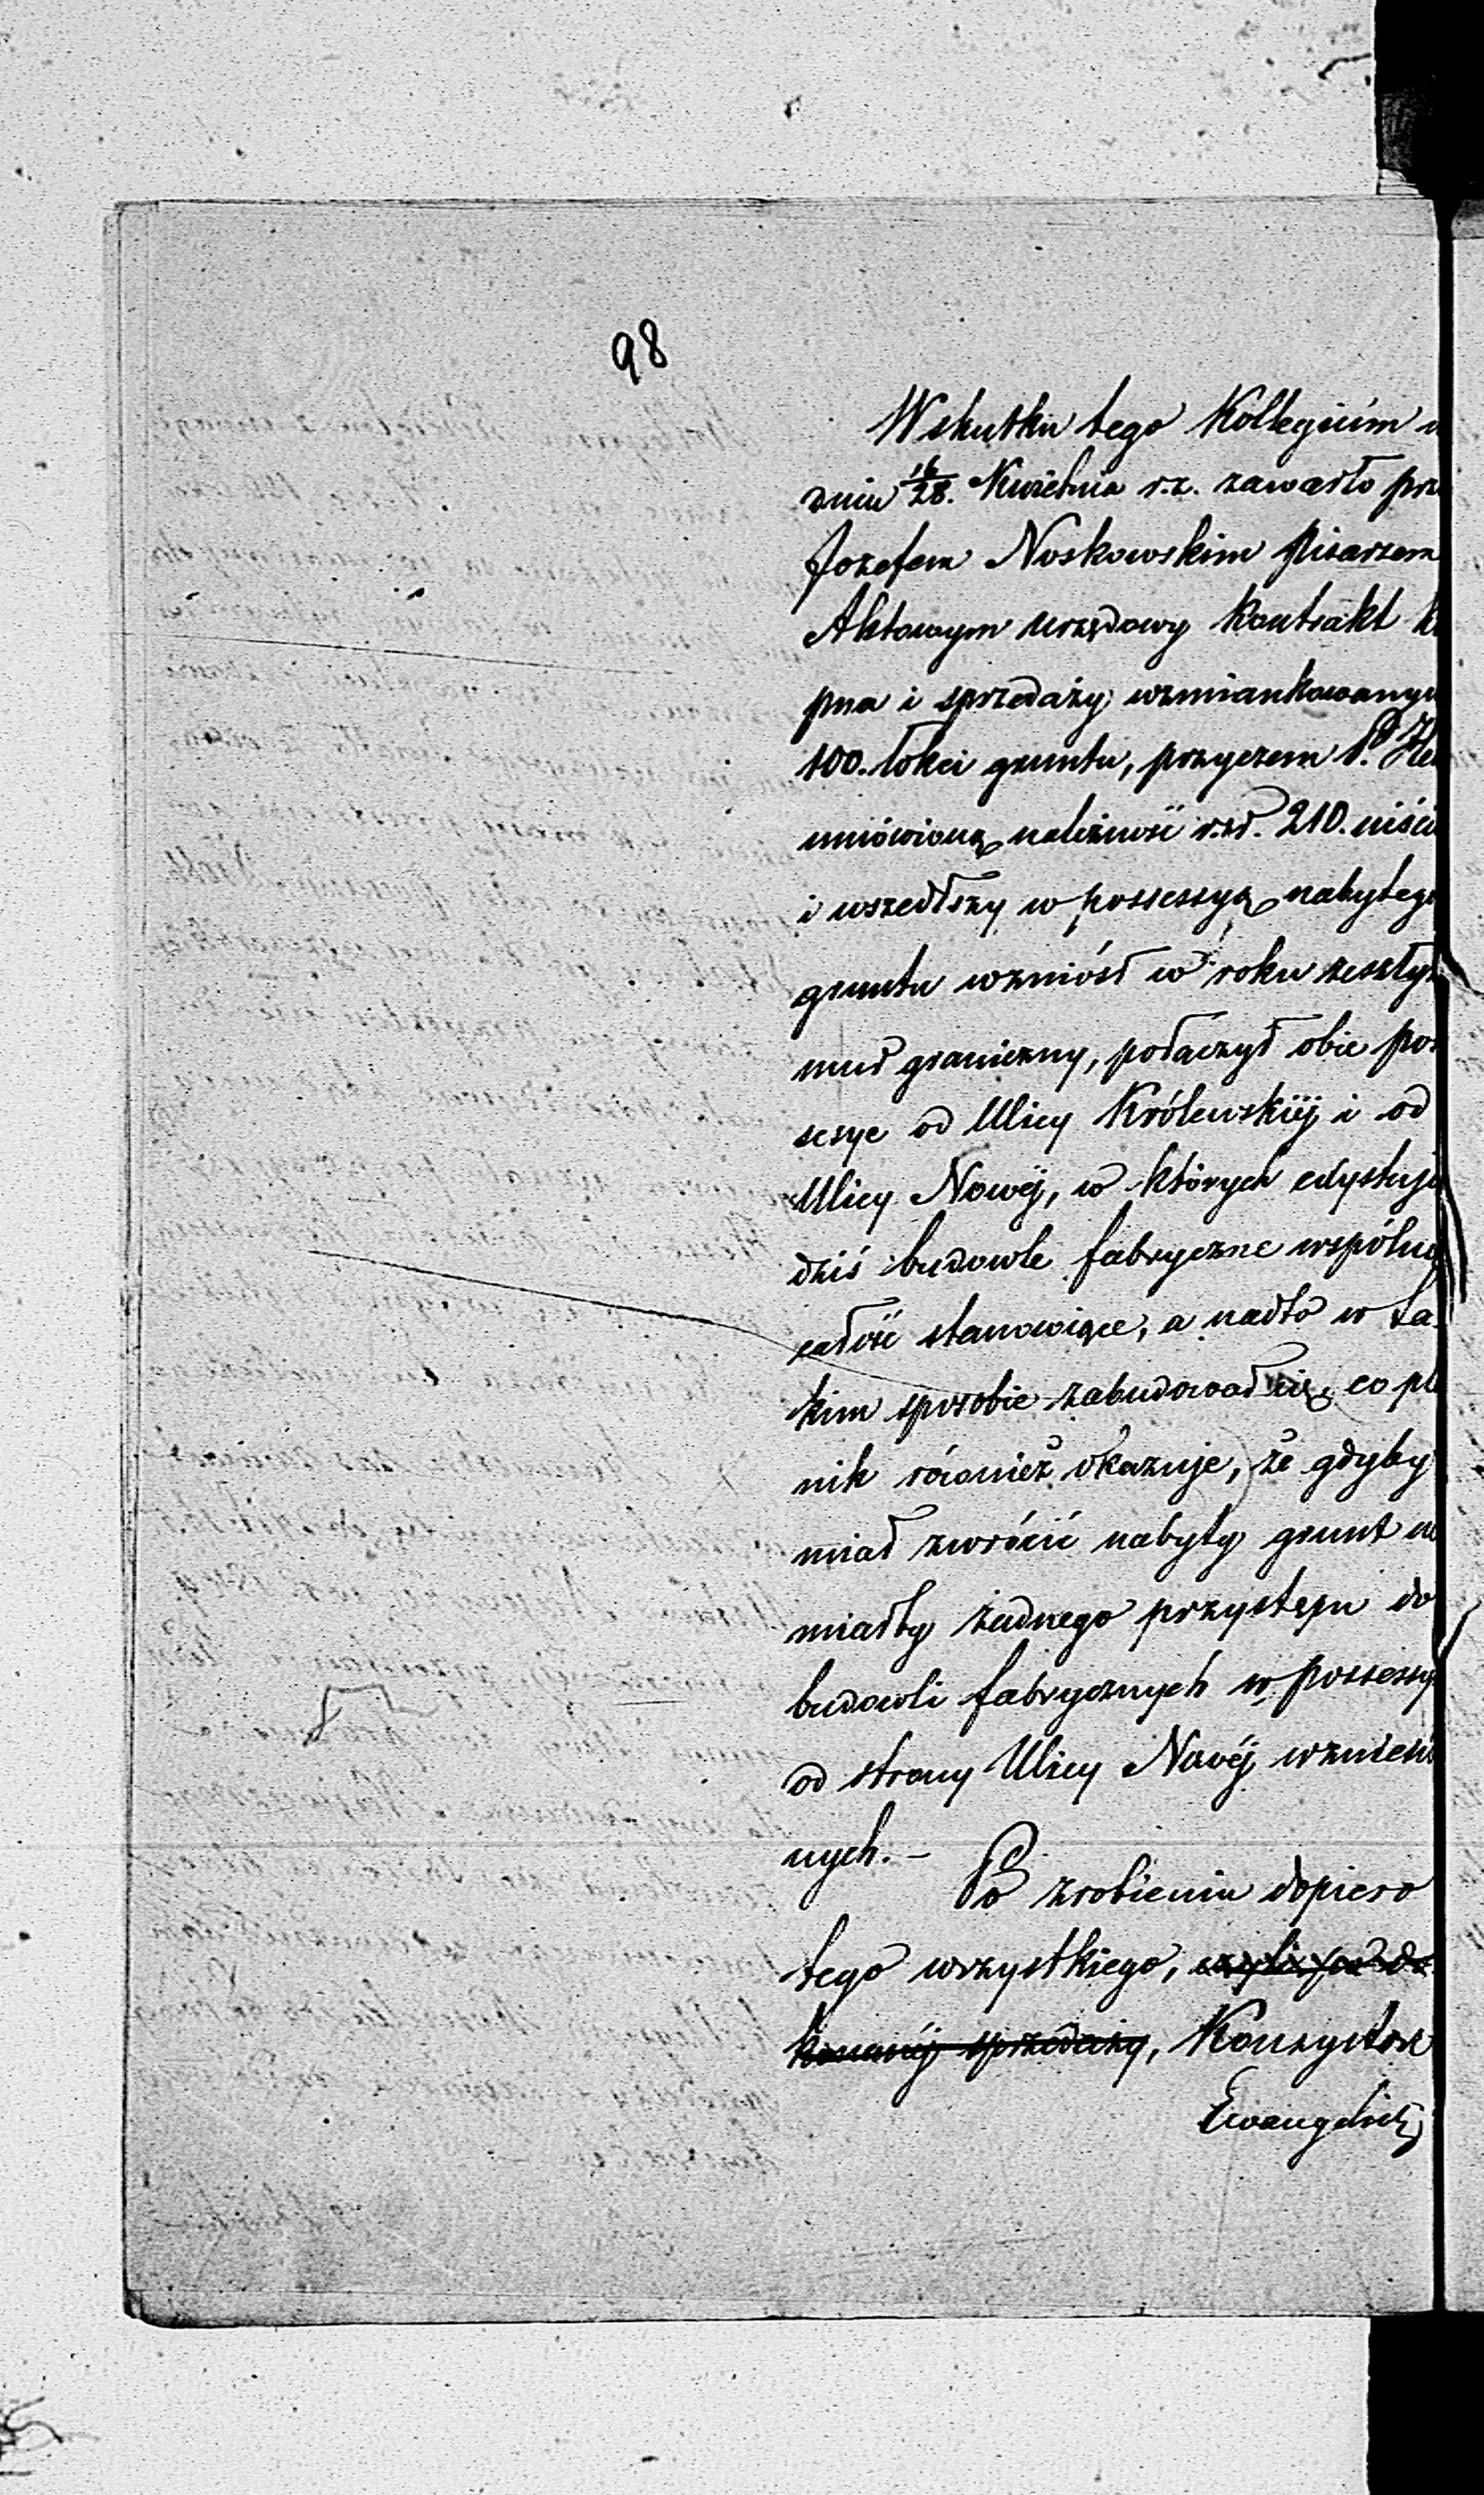 98
Wskutku tego Kollegium
dniu 16/28. Kwietnia r.z. zawarło prz
Jozefem Noskowskim Pisarzem
Aktowym urzędowy kontrakt k
pna i sprzedaży wzmiankowanym
100. łokci gruntu, przyczem P.
umówioną należność rsr. 210. uiści
i wszedłszy w possessyą nabytego
gruntu wzniósł w roku zeszłym
mur graniczny, połączył obie pos
sesye od Ulicy Królewskiéj i od
Ulicy Nowéj, w których edystuję
dziś budowle fabryczne wspólną
całość stanowiące, a nadto w ta-
kim sposobie zabudował się, co pla
nik również okazuje, że gdyby
miał zwrócić nabyty grunt
miałby żadnego przystępu do
budowli fabrycznych w possessyi
od strony Ulicy Nowéj wzniesio
nych. –
Po zrobieniu dopiero
tego wszystkiego, czyli po do
konanéj sprzedaży, Konsystorz
Ewangelicki